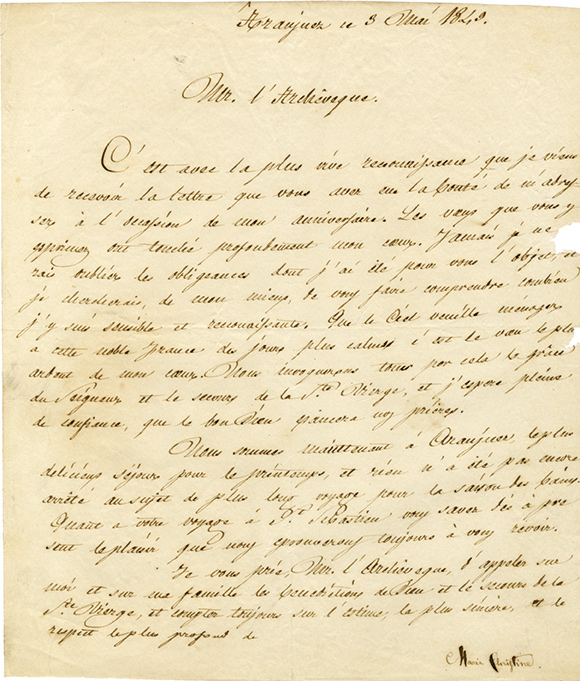 Aranjuez ce 3 Mai 1849.
Mr. l'Archêveque.
C'est avec la plus vive reconnaissance que je viens
de recevoir la lettre que vous avez eu la bonté de m'adres
ser à l'occasion de mon anniversaire. Les vœux que vous y
exprimez ont touché profondement mon cœur. Jamais je ne
rais oublier les obligeances dont j'ai été pour vous l'objet, et
je chercherais, de mon mieux, de vous faire comprendre combien
j'y suis sensible et reconaissante. Que le Ciel veuille ménager
à cette noble France des jours plus calmes c'est le vœu le plus
ardent de mon cœur. Nous invoquerons tous por cela la grâce
du Seigneur et le secours de la Ste. Vierge, et j'espere pleine
de confiance, que le bon Dieu exaucera nos prières.
Nous sommes maintenant à Aranjuez, le plus
delicieux séjour pour le printemps, et rien n'a été pas encore
arrêté au sujet de plus long voyage pour la saison des bains.
Quant a votre voyage à St. Sébastien vous savez dès à pré
sent le plaisir que nous eprouverons toujours à vous revoir.
Je vous prie, Mr. l'Archêveque, d'appeler sur
moi et sur ma famille les benedictions de Dieu et le secours de la
Ste. Vierge, et compter toujours sur l'estime, la plus sincère, et le
respect le plus profond de
Marie Christine.